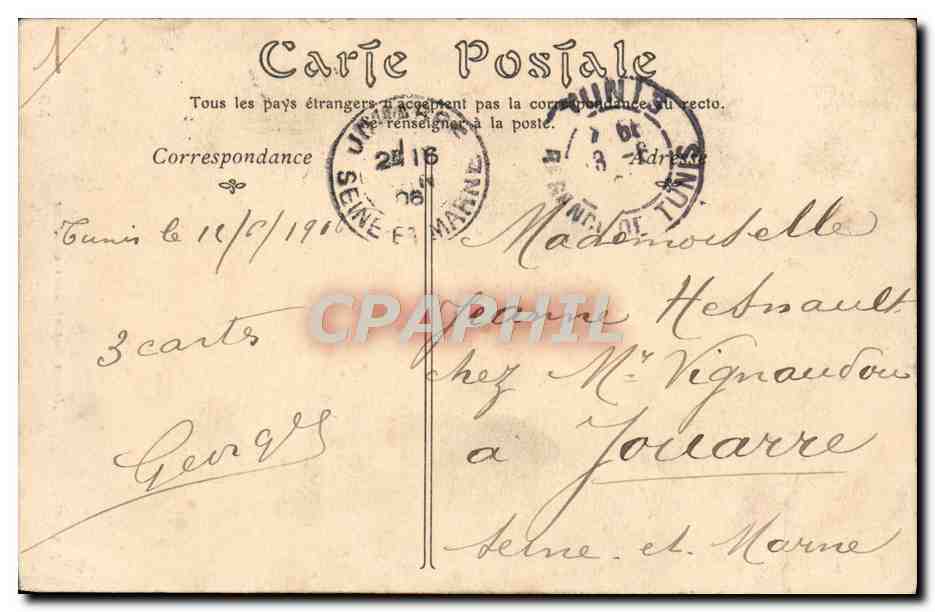 1
Carte Postale
Tous les pays étrangers n'acceptent pas la correspondance au recto.
Se renseigner à la poste.
Correspondance
Adresse
JOUARRE
SEINE-ET-MARNE
TUNIS
REGENCE DE TUNIS
Tunis le
3 cartes
Georges
Mademoiselle
Jeanne
chez Mr. Vignaudou
à Jouarre
Seine-et-Marne
CPAPHIL